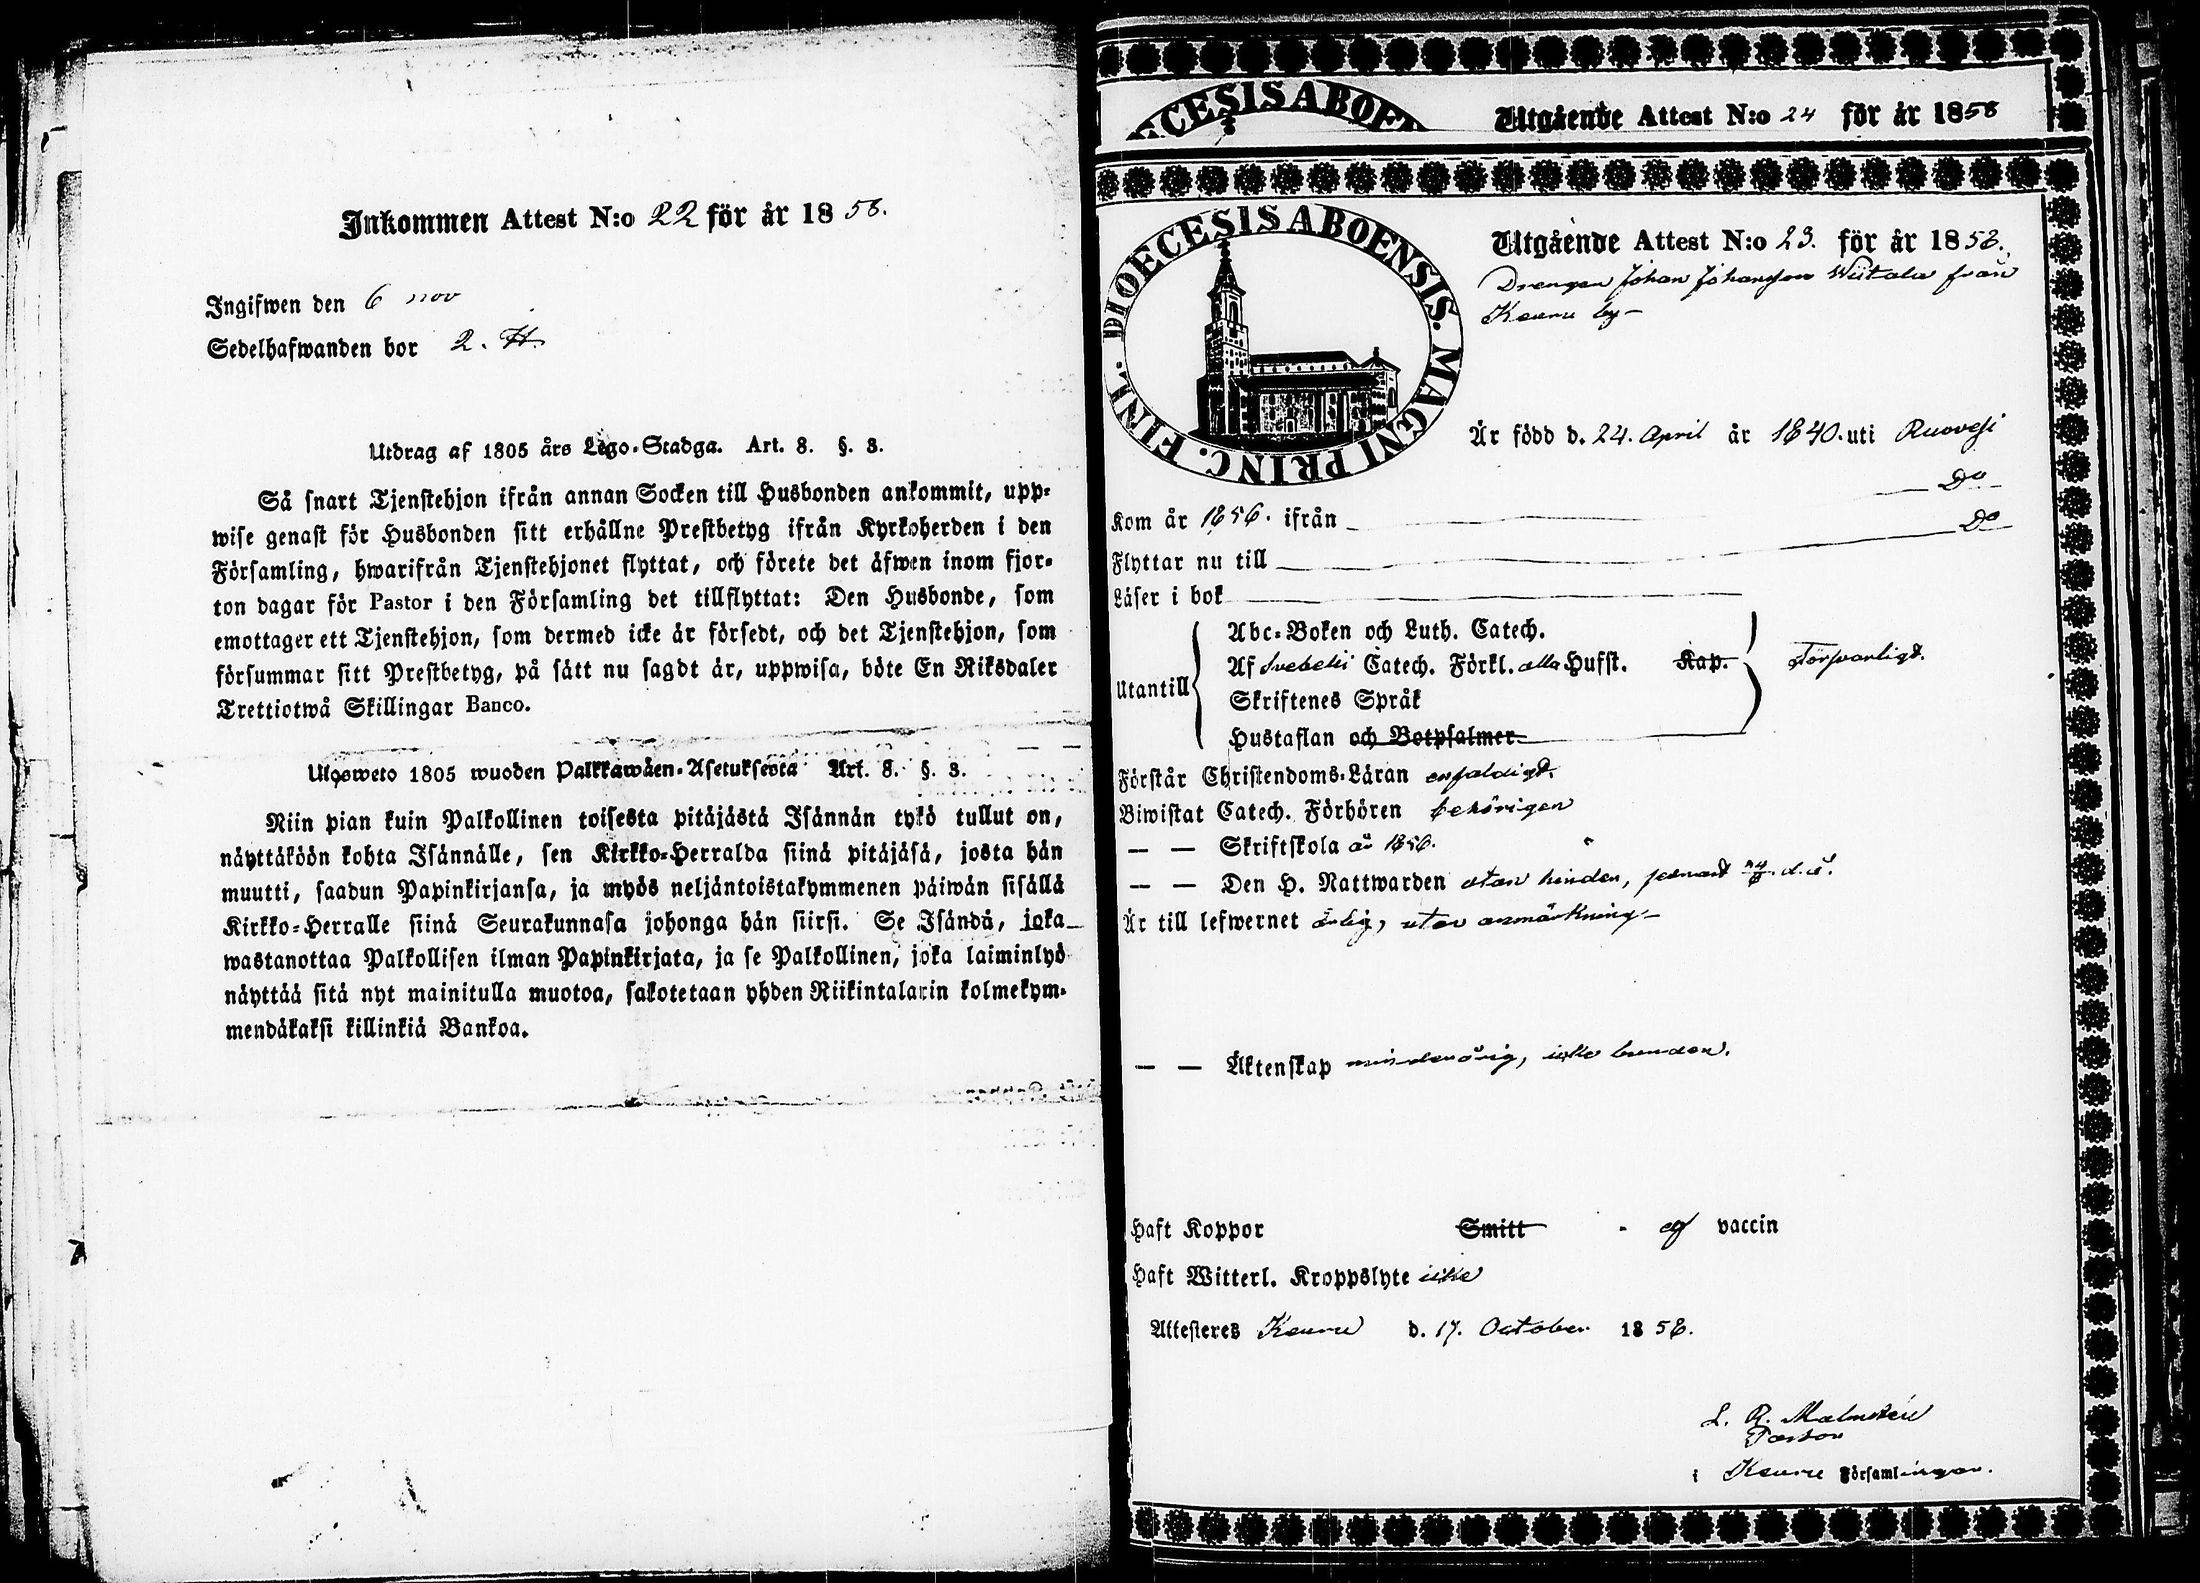 Inkommen Attest N:o 22 för år 1858.
Ingifwen den 6 nov
Sedelhafwanden bor 2. H.
Utdrag af 1805 års Lego-Stadga. Art. 8. §. 3.
Så snart Tjenstehjon ifrån annan Socken till Husbonden ankommit, upp-
wise genast för Husbonden sitt erhållne Prestbetyg ifrån Kyrkoherden i den
Församling, hwarifrån Tjenstehjonet flyttat, och förete det äfwen inom fjor-
ton dagar för Pastor i den Församling det tillflyttat: Den Husbonde, som
emottager ett Tjenstehjon, som dermed icke är försedt, och det Tjenstehjon, som
försummar sitt Prestbetyg, på sätt nu sagdt är, uppwisa, böte En Riksdaler
Trettiotwå Skillingar Banco.
Ulosweto 1805 wuoden Palkkawäen-Asetuksesta Art. 8. §. 3.
Niin pian kuin Palkollinen toisesta pitäjästä Isännän tykö tullut on,
näyttäköön kohta Isännälle, sen Kirkko-Herralda siinä pitäjäsä, josta hän
muutti, saadun Papinkirjansa, ja myös neljäntoistakymmenen päiwän sisällä
Kirkko-Herralle siinä Seurakunnasa johonga hän siirsi. Se Isändä, joka
wastanottaa Palkollisen ilman Papinkirjata, ja se Palkollinen, joka laiminlyö
näyttää sitä nyt mainitulla muotoa, sakotetaan yhden Riikintalarin kolmekym-
mendäkaksi killinkiä Bankoa.
ECESIS ABOE
Utgående Attest N:o 24 för år 1858
DIOECESIS ABOENSIS. MAGNI PRINC. FINL.
Utgående Attest N:o 23. för år 1858.
Drengen Johan Johansson Wiitala från
Keuru by-
Är född d. 24. April år 1840. uti Ruovesi
Kom år 1856. ifrån Do
Flyttar nu till Do
Läser i bok
Abc-Boken och Luth. Catech.
Utantill Af Svebelii Catech. Förkl. alla Hufst. Kap. försvarligt.
Skriftenes Språk
Hustaflan och Botpsalmer
Förstår Christendoms-Läran enfaldigt.
Biwistat Catech. Förhören behörigen
— — Skriftskola år 1856.
— — Den H. Nattwarden utan hinder, senast d. å.
Är till lefwernet ärlig, utan anmärkning-
— — Äktenskap minderårig, icke bunden.
Haft Koppor Smitt - ej vaccin
Haft Witterl. Kroppslyte icke
Attesteres Keuru d. 17. October 1858.
L. R. Malmstén
Pastor
i Keuru Församlingar.